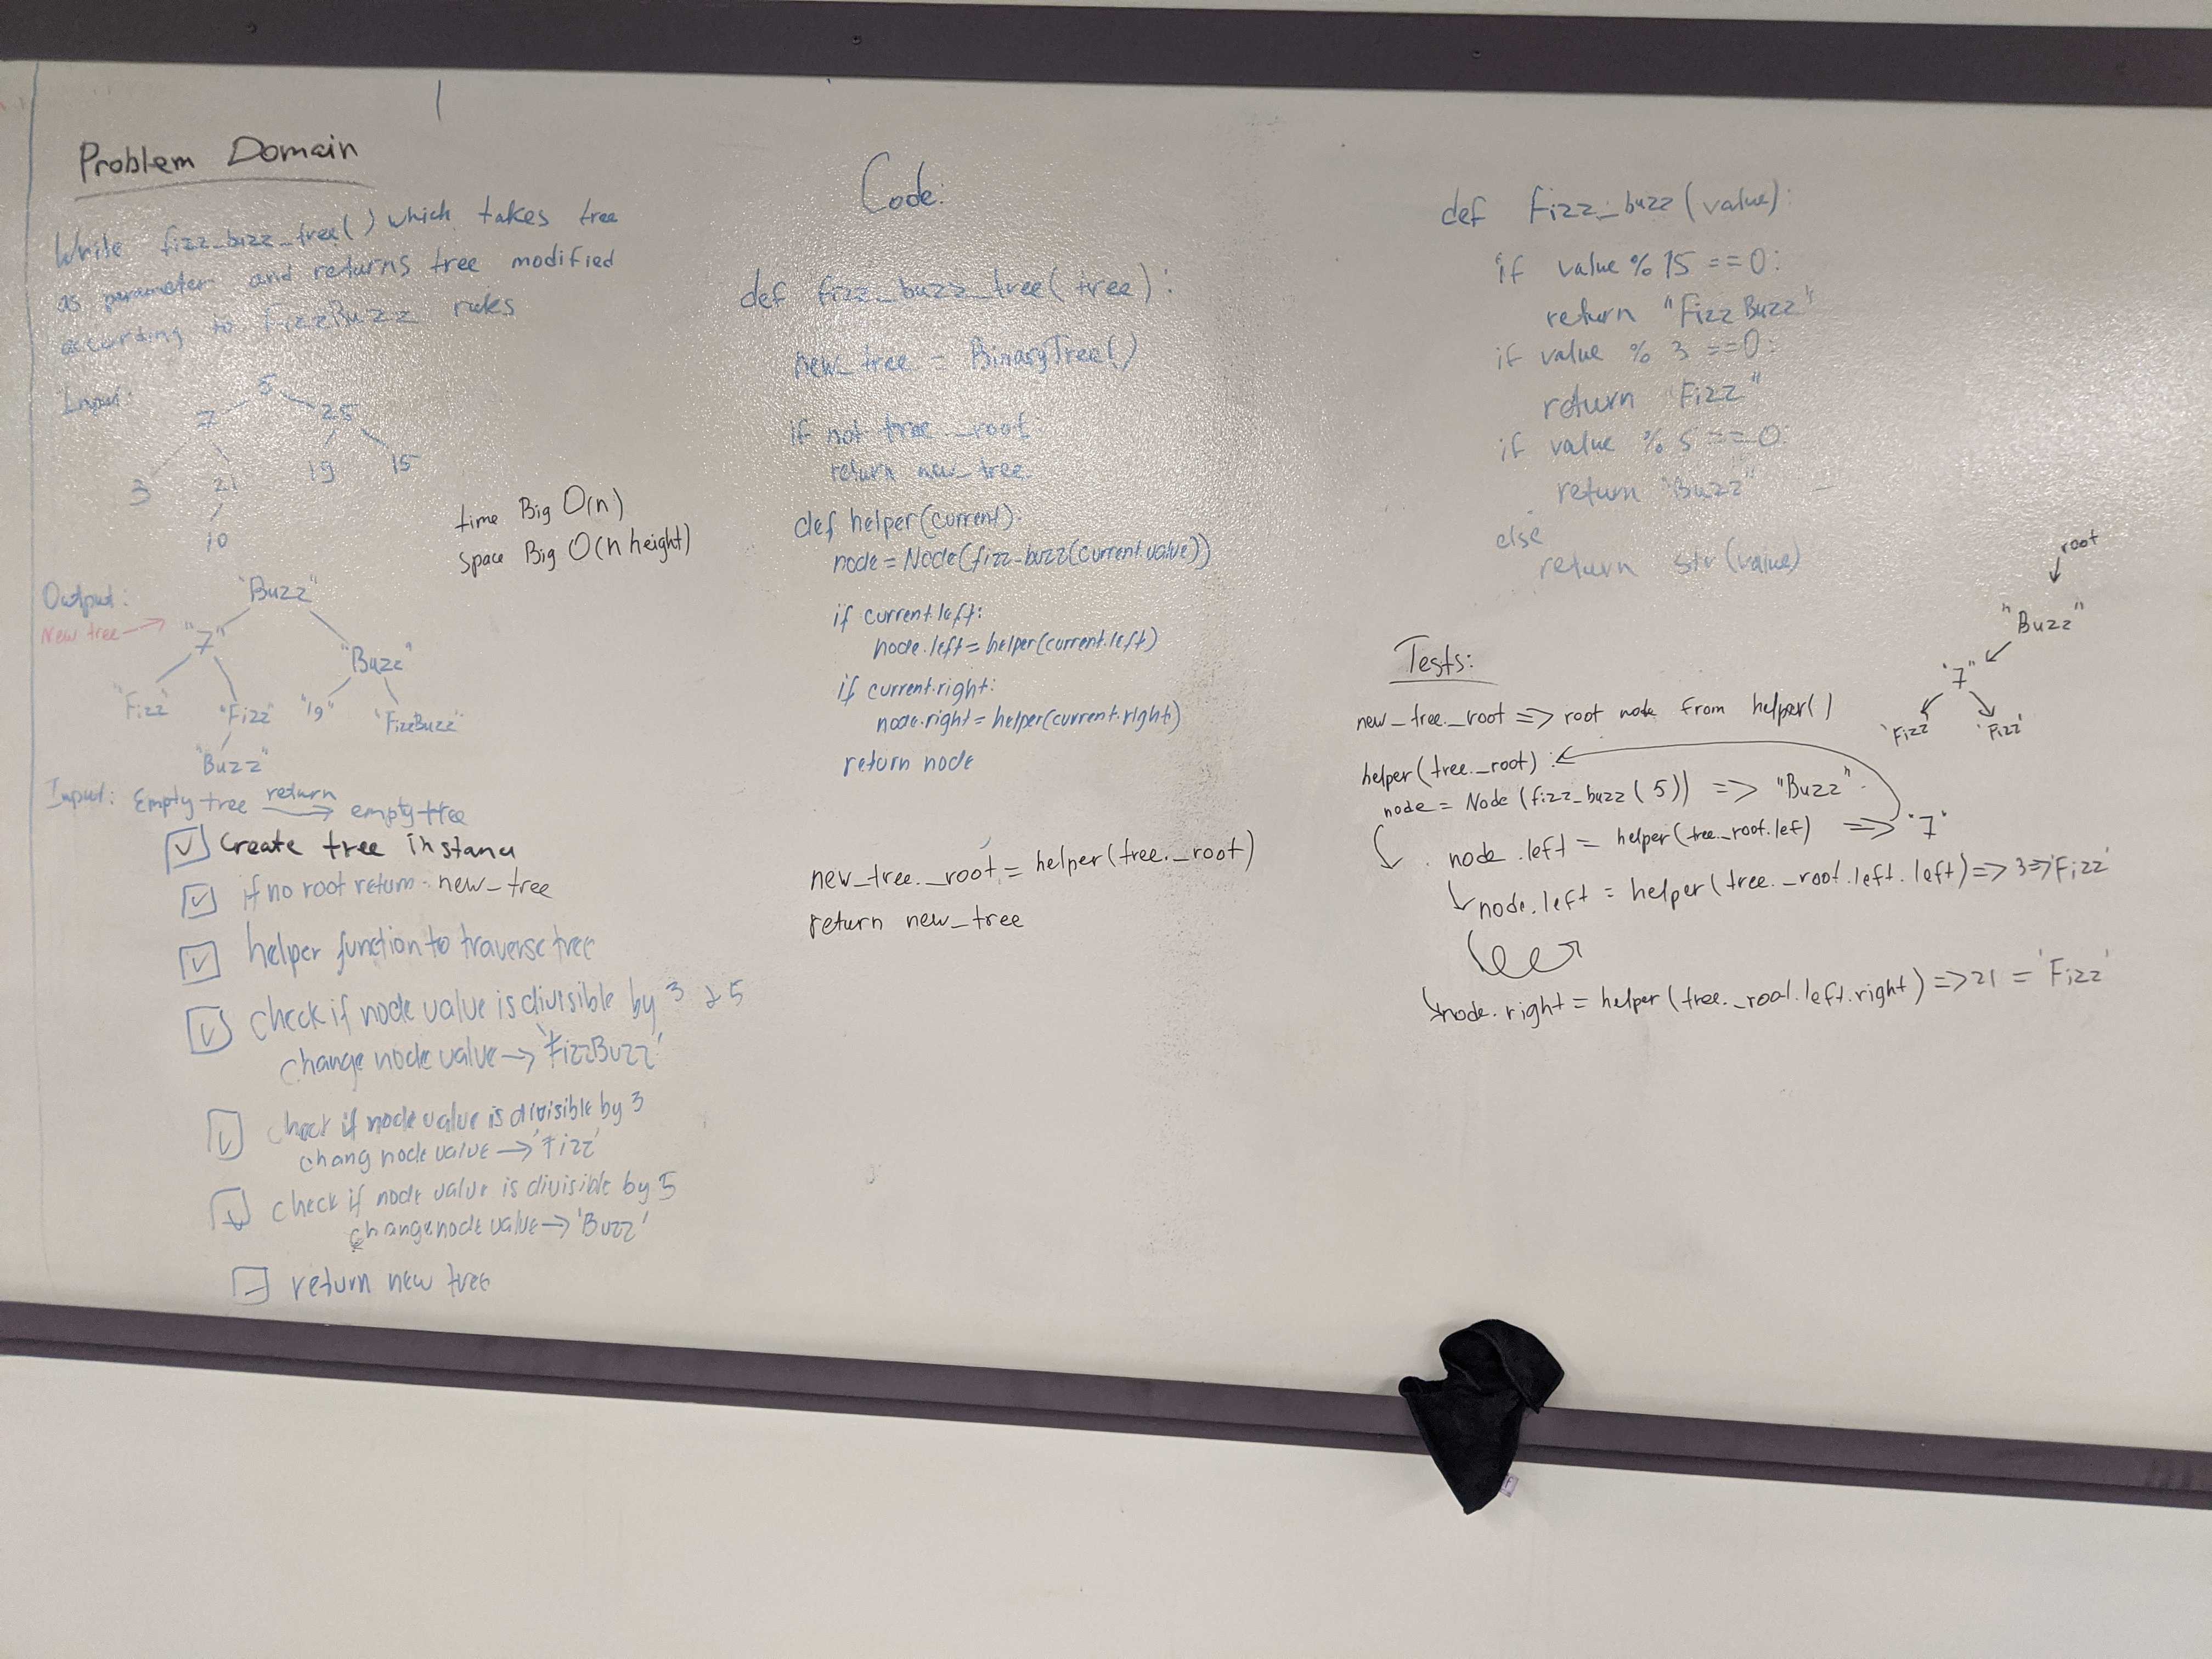 Problem Domain
Write fizz_bizz_tree() which takes tree
as parameter and returns tree modified
according to FizzBuzz rules
Input:
5
7 25
3 21 19 15
10
time Big O(n)
Space Big O(n height)
Output:
New tree →
"Buzz"
"7" "Buzz"
"Fizz" "Fizz" "19" "FizzBuzz"
"Buzz"
Input: Empty tree return → empty tree
create tree instanc
if no root return new_tree
helper function to traverse tree
check if node value is divisible by 3 & 5
change node value → 'FizzBuzz'
check if node value is divisible by 3
chang node value → 'Fizz'
check if node value is divisible by 5
change node value → 'Buzz'
return new tree
Code:
def fizz_buzz_tree(tree):
new_tree = BinaryTree()
if not tree._root
return new_tree.
def helper(current):
node = Node(fizz_buzz(current.value))
if current.left:
node.left = helper(current.left)
if current.right:
node.right = helper(current.right)
return node
new_tree._root = helper(tree._root)
return new_tree
def Fizz_buzz(value):
if value % 15 == 0:
return "FizzBuzz"
if value % 3 == 0:
return "Fizz"
if value % 5 == 0:
return "Buzz"
else
return str(value)
root
"Buzz"
"7"
'Fizz' 'Fizz'
Tests:
new_tree._root => root node from helper()
helper(tree._root):
node = Node(fizz_buzz(5)) => "Buzz"
node.left = helper(tree._root.lef) => "7"
node.left = helper(tree._root.left.left) => 3 => 'Fizz'
node.right = helper(tree._root.left.right) => 21 = 'Fizz'